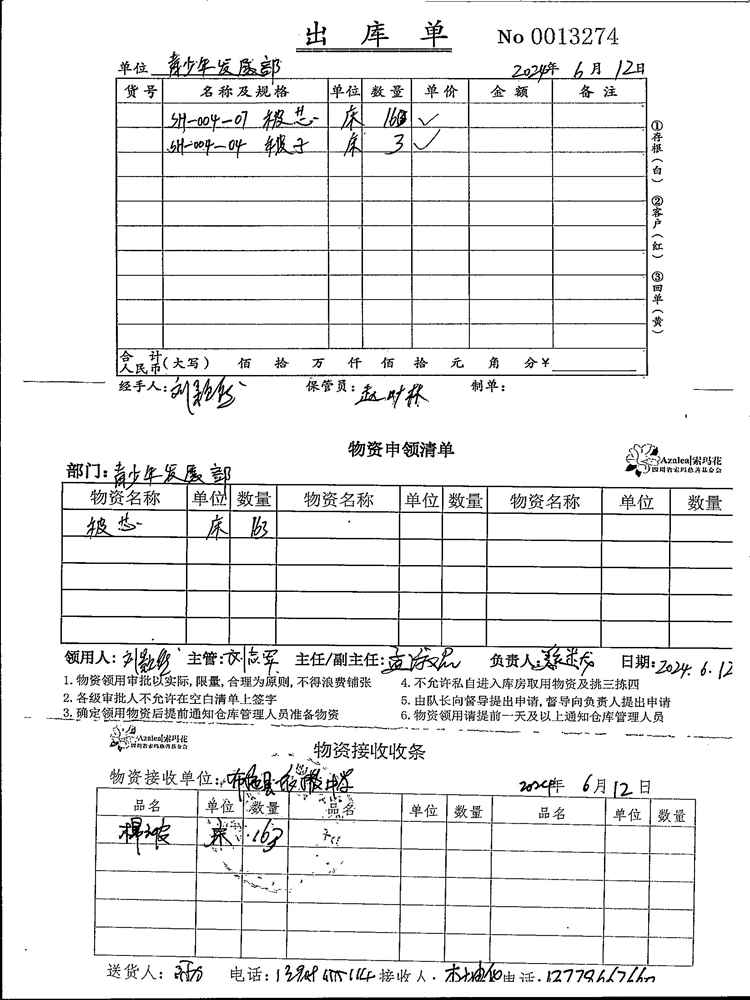 出库单 No 0013274
单位 青少年发展部 2024年 6月 12日
货号 名称及规格 单位 数量 单价 金额 备注
SH-004-07 被芯 床 163 ✓
SH-004-04 被子 床 3 ✓
①存根(白) ②客户(红) ③回单(黄)
合计人民币(大写) 佰 拾 万 仟 佰 拾 元 角 分 ¥
经手人: 保管员: 制单:
物资申领清单
Azalea|索玛花
四川省索玛慈善基金会
部门: 青少年发展部
物资名称 单位 数量 物资名称 单位 数量 物资名称 单位 数量
被芯 床 163
领用人: 主管: 主任/副主任: 负责人: 日期: 2024.6.12
1. 物资领用审批以实际, 限量, 合理为原则, 不得浪费铺张 4. 不允许私自进入库房取用物资及挑三拣四
2. 各级审批人不允许在空白清单上签字 5. 由队长向督导提出申请, 督导向负责人提出申请
3. 确定领用物资后提前通知仓库管理人员准备物资 6. 物资领用请提前一天及以上通知仓库管理人员
Azalea|索玛花
四川省索玛慈善基金会
物资接收收条
物资接收单位: 2024年 6月 12日
品名 单位 数量 品名 单位 数量 品名 单位 数量
棉被 床 163
送货人: 电话: 接收人: 电话: